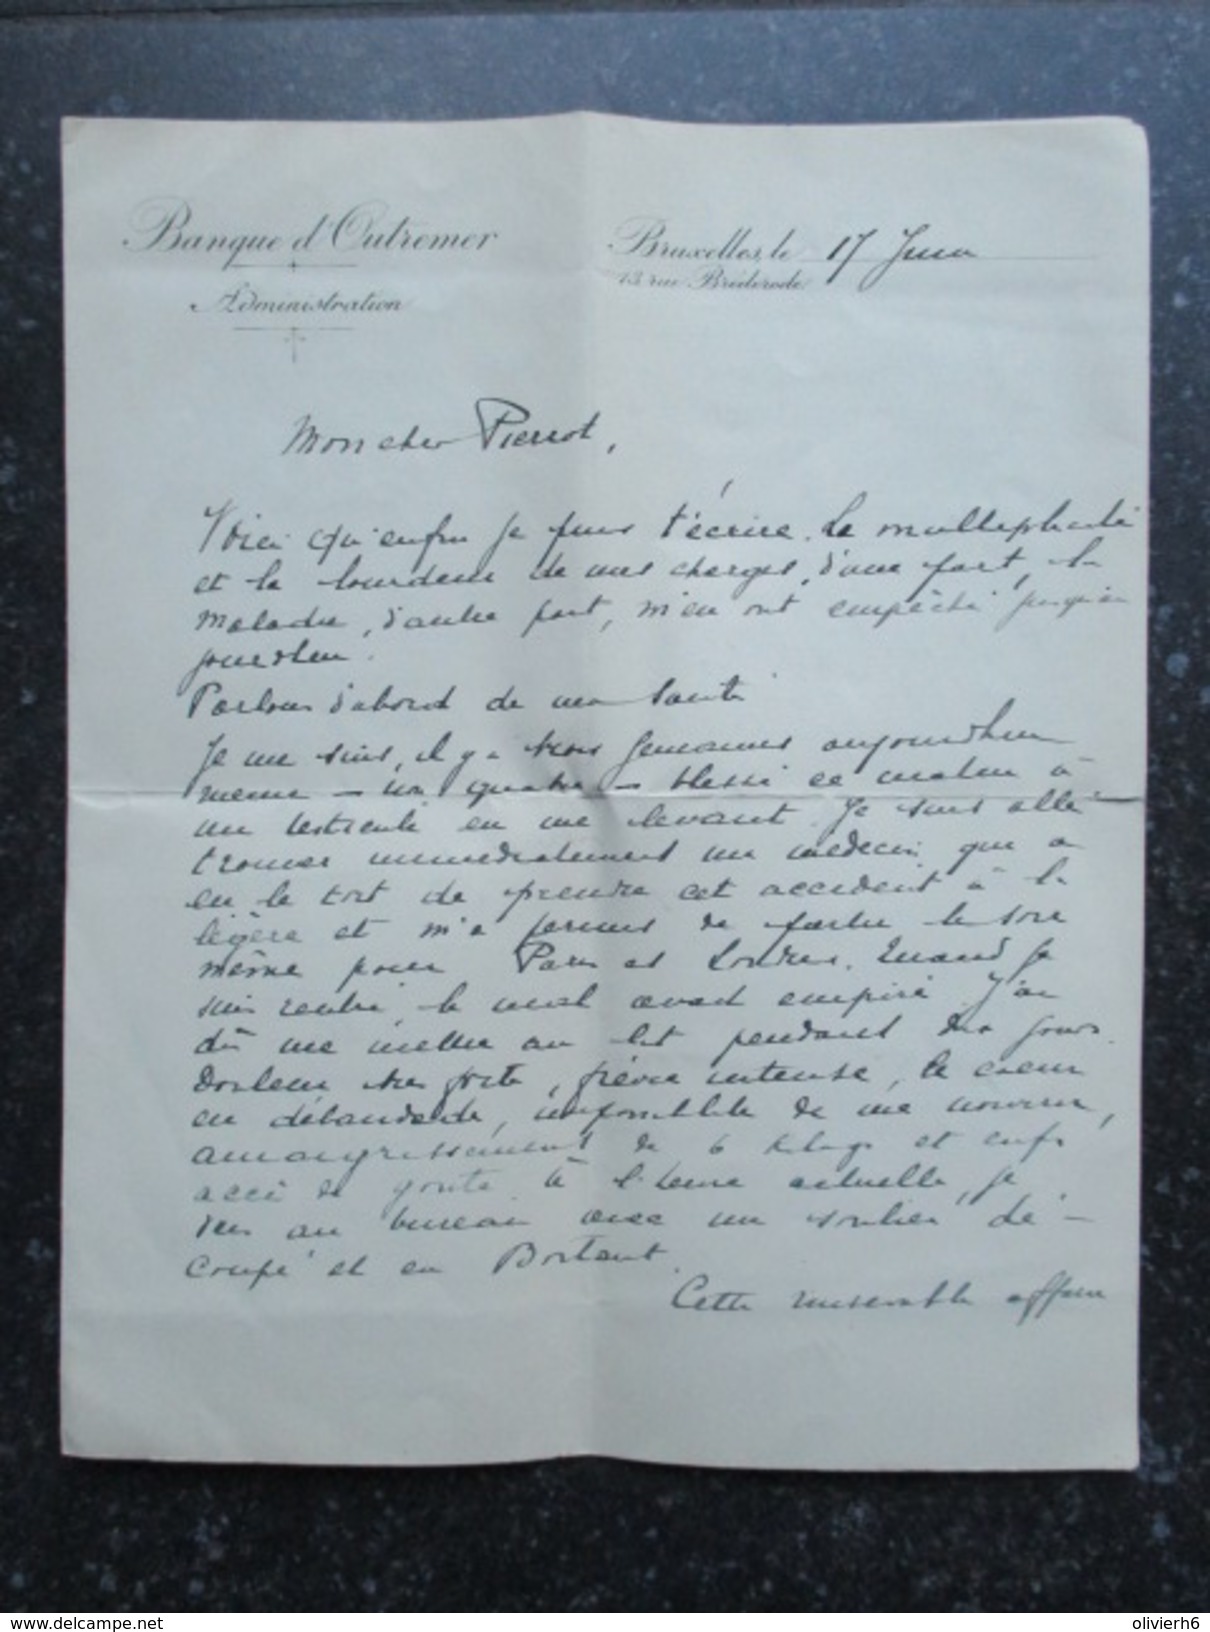 Banque d'Outremer
Administration
Bruxelles, le 17 Juin
13 rue Bréderode
Mon cher Pierrot,
Voici qu'enfin je puis t'écrire. La multiplicité
et la lourdeur de mes charges, d'une part, la
maladie, d'autre part, m'en ont empêché jusqu'au
jourd'hui.
Parlons d'abord de ma santé
Je me suis, il y a trois semaines aujourd'hui
même – non quatre – blessé ce matin à
un testicule en me levant. Je suis allé
trouver immédiatement un médecin qui a
eu le tort de prendre cet accident à la
légère et m'a permis de partir le soir
même pour Paris et Londres. Quand je
suis rentré, le mal avait empiré. J'ai
dû me mettre au lit pendant dix jours.
Douleur très forte, fièvre intense, le cœur
en débandade, impossible de me nourrir,
amaigrissement de 6 kilogs et enfin
accès de goutte. À l'heure actuelle, je
vais au bureau avec un soulier dé-
coupé et en boitant.
Cette misérable affaire
www.delcampe.net
olivierh6